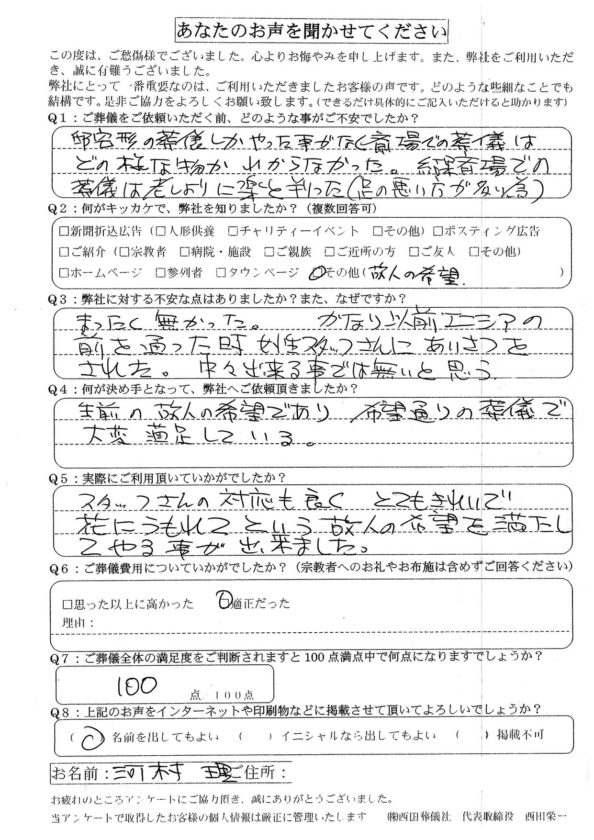 あなたのお声を聞かせてください
この度は、ご愁傷様でございました。心よりお悔やみを申し上げます。また、弊社をご利用いただ
き、誠に有難うございました。
弊社にとって一番重要なのは、ご利用いただきましたお客様の声です。どのような些細なことでも
結構です。是非ご協力をよろしくお願い致します。(できるだけ具体的にご記入いただけると助かります)
Q1:ご葬儀をご依頼いただく前、どのような事がご不安でしたか?
葬儀しかやった事がなく斎場での葬儀は
どの様な物か わからなかった。 斎場での
葬儀は老しよりに楽と判った(足の悪い方が多い為)
Q2:何がキッカケで、弊社を知りましたか?(複数回答可)
□新聞折込広告 (□人形供養 □チャリティーイベント □その他) □ポスティング広告
□ご紹介 (□宗教者 □病院・施設 □ご親族 □ご近所の方 □ご友人 □その他)
□ホームページ □参列者 □タウンページ □その他(故人の希望 )
Q3:弊社に対する不安な点はありましたか?また、なぜですか?
まったく無かった。 かなり以前エニシアの
前を通った時 女性スタッフさんに あいさつを
された。中々出来る事では無いと思う
Q4:何が決め手となって、弊社へご依頼頂きましたか?
生前の故人の希望であり 希望通りの葬儀で
大変満足している。
Q5:実際にご利用頂いていかがでしたか?
スタッフさんの対応も良く とてもきれいで
花にうもれてという故人の希望を満たし
てやる事が出来ました。
Q6:ご葬儀費用についていかがでしたか?(宗教者へのお礼やお布施は含めずご回答ください)
□思った以上に高かった □適正だった
理由:
Q7:ご葬儀全体の満足度をご判断されますと100点満点中で何点になりますでしょうか?
100 点 100点
Q8:上記のお声をインターネットや印刷物などに掲載させて頂いてよろしいでしょうか?
(○)名前を出してもよい ( )イニシャルなら出してもよい ( )掲載不可
お名前:河村 理 ご住所:
お疲れのところアンケートにご協力頂き、誠にありがとうございました。
当アンケートで取得したお客様の個人情報は厳正に管理いたします ㈱西田葬儀社 代表取締役 西田栄一